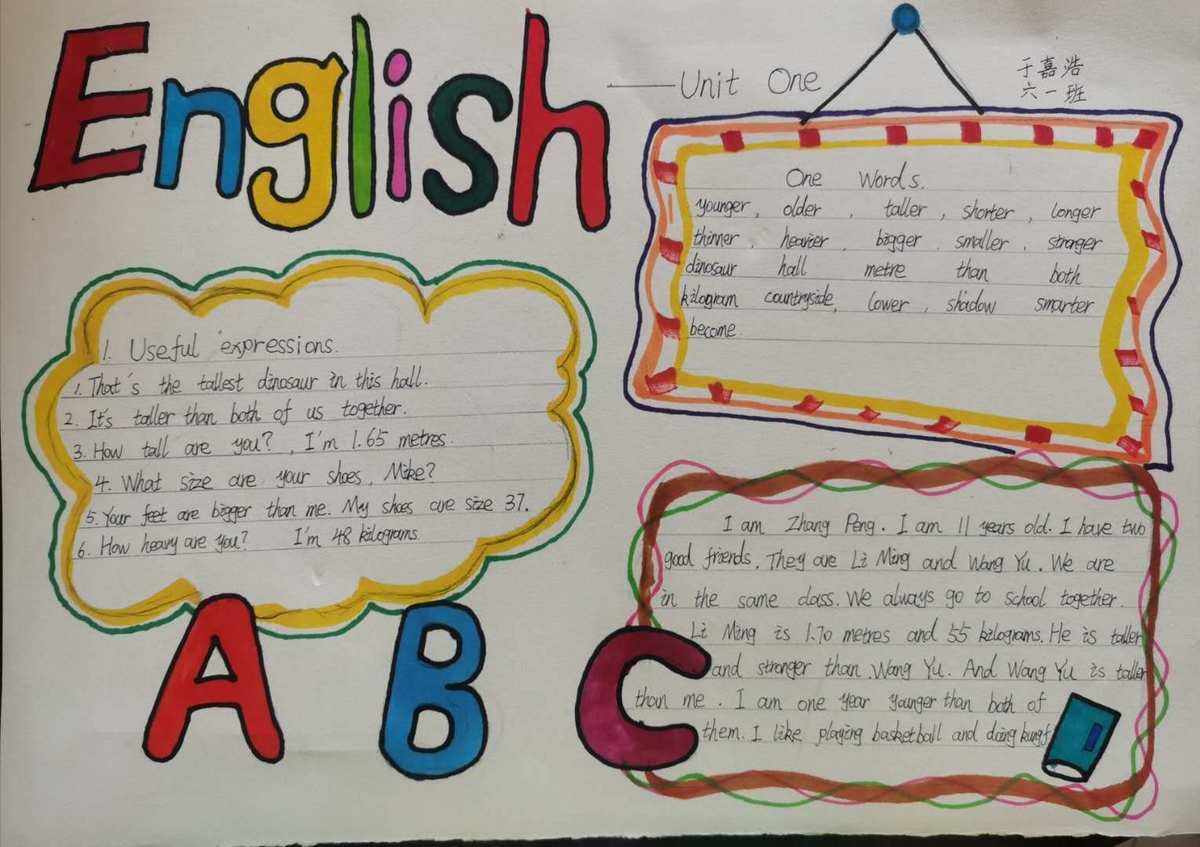 English
——Unit One
于嘉浩
六一班
One Words.
younger, older, taller, shorter, longer
thinner, heavier, bigger, smaller, stronger
dinosaur hall metre than both
kilogram countryside, lower, shadow smarter
become.
1. Useful expressions.
1. That's the tallest dinosaur in this hall.
2. It's taller than both of us together.
3. How tall are you?, I'm 1.65 metres.
4. What size are your shoes, Mike?
5. Your feet are bigger than me. My shoes are size 37.
6. How heavy are you? I'm 48 kilograms.
I am Zhang Peng. I am 11 years old. I have two
good friends. They are Li Ming and Wang Yu. We are
in the same class. We always go to school together.
Li Ming is 1.70 metres and 55 kilograms. He is taller
and stronger than Wang Yu. And Wang Yu is taller
than me. I am one year younger than both of
them. I like playing basketball and doing kungf
A B C